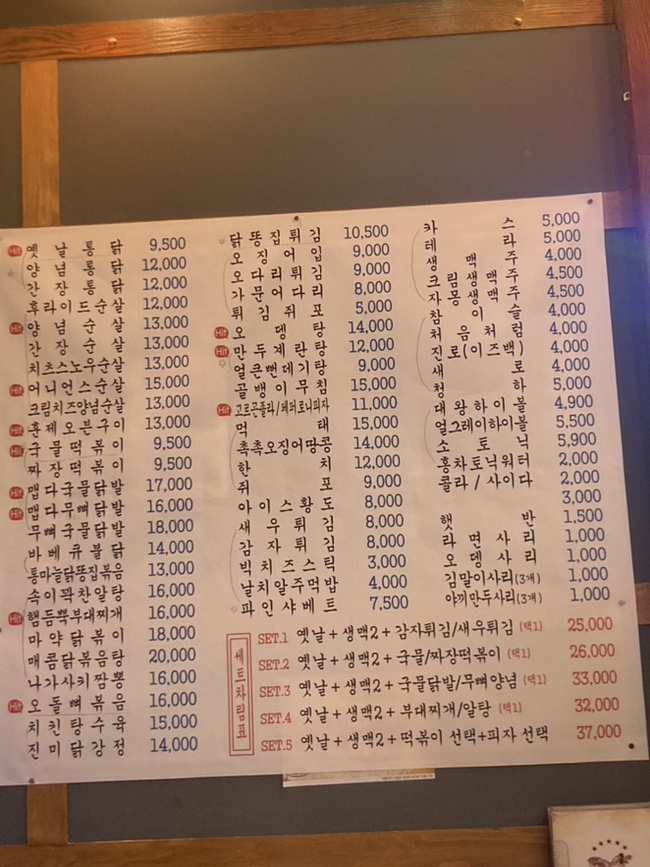 Hit 옛날통닭 9,500
양념통닭 12,000
간장통닭 12,000
후라이드순살 12,000
Hit 양념순살 13,000
간장순살 13,000
치츠스노우순살 13,000
Hit 어니언스순살 15,000
크림치즈양념순살 13,000
Hit 훈제오븐구이 13,000
Hit 국물떡볶이 9,500
짜장떡볶이 9,500
Hit 맵다국물닭발 17,000
Hit 맵다무뼈닭발 16,000
무뼈국물닭발 18,000
바베큐불닭 14,000
통마늘닭똥집볶음 13,000
속이꽉찬알탕 16,000
Hit 햄듬뿍부대찌개 16,000
마약닭볶이 18,000
매콤닭볶음탕 20,000
나가사키짬뽕 16,000
Hit 오돌뼈볶음 16,000
치킨탕수육 15,000
진미닭강정 14,000
닭똥집튀김 10,500
오징어입 9,000
오다리튀김 9,000
가문어다리 8,000
튀김쥐포 5,000
Hit 오뎅탕 14,000
Hit 만두계란탕 12,000
얼큰뻔데기탕 9,000
골뱅이무침 15,000
Hit 고르곤졸라/페퍼로니피자 11,000
먹태 15,000
촉촉오징어땅콩 14,000
한치 12,000
쥐포 9,000
아이스황도 8,000
새우튀김 8,000
감자튀김 8,000
빅치즈스틱 3,000
날치알주먹밥 4,000
파인샤베트 7,500
카스 5,000
테라 5,000
생맥주 4,000
크림생맥주 4,500
자몽생맥주 4,500
참이슬 4,000
처음처럼 4,000
진로(이즈백) 4,000
새로 4,000
청하 5,000
대왕하이볼 4,900
얼그레이하이볼 5,500
소토닉 5,900
홍차토닉워터 2,000
콜라/사이다 2,000
3,000
햇반 1,500
라면사리 1,000
오뎅사리 1,000
김말이사리(3개) 1,000
야끼만두사리(3개) 1,000
세트차림표
SET.1 옛날+생맥2+감자튀김/새우튀김 (택1) 25,000
SET.2 옛날+생맥2+국물/짜장떡볶이 (택1) 26,000
SET.3 옛날+생맥2+국물닭발/무뼈양념 (택1) 33,000
SET.4 옛날+생맥2+부대찌개/알탕 (택1) 32,000
SET.5 옛날+생맥2+떡볶이 선택+피자 선택 37,000